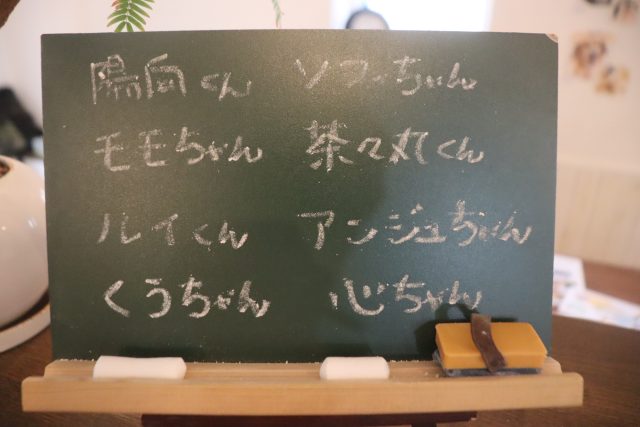 陽向くん ソフィちゃん
モモちゃん 茶々丸くん
ルイくん アンジュちゃん
くうちゃん 心ちゃん